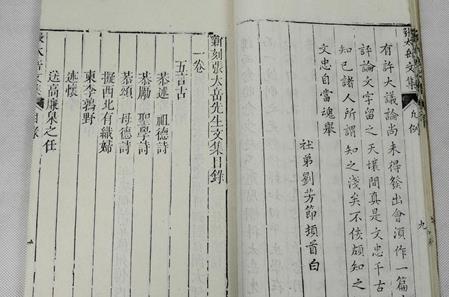 張太岳文集 凡例 九
有許大議論尚未得發出會湏作一篇
評論文字留之天壤間真是文忠千古
知已諸人所謂知之淺矣不佞頗知之
文忠自當魂舉
社弟劉芳節頓首白
新刻張太岳先生文集目錄
一卷
五言古
恭述 祖德詩
恭勵 聖學詩
恭頌 母德詩
擬西北有織婦
東李鶴野
述懷
送高廉泉之任
張太岳文集 目錄 一